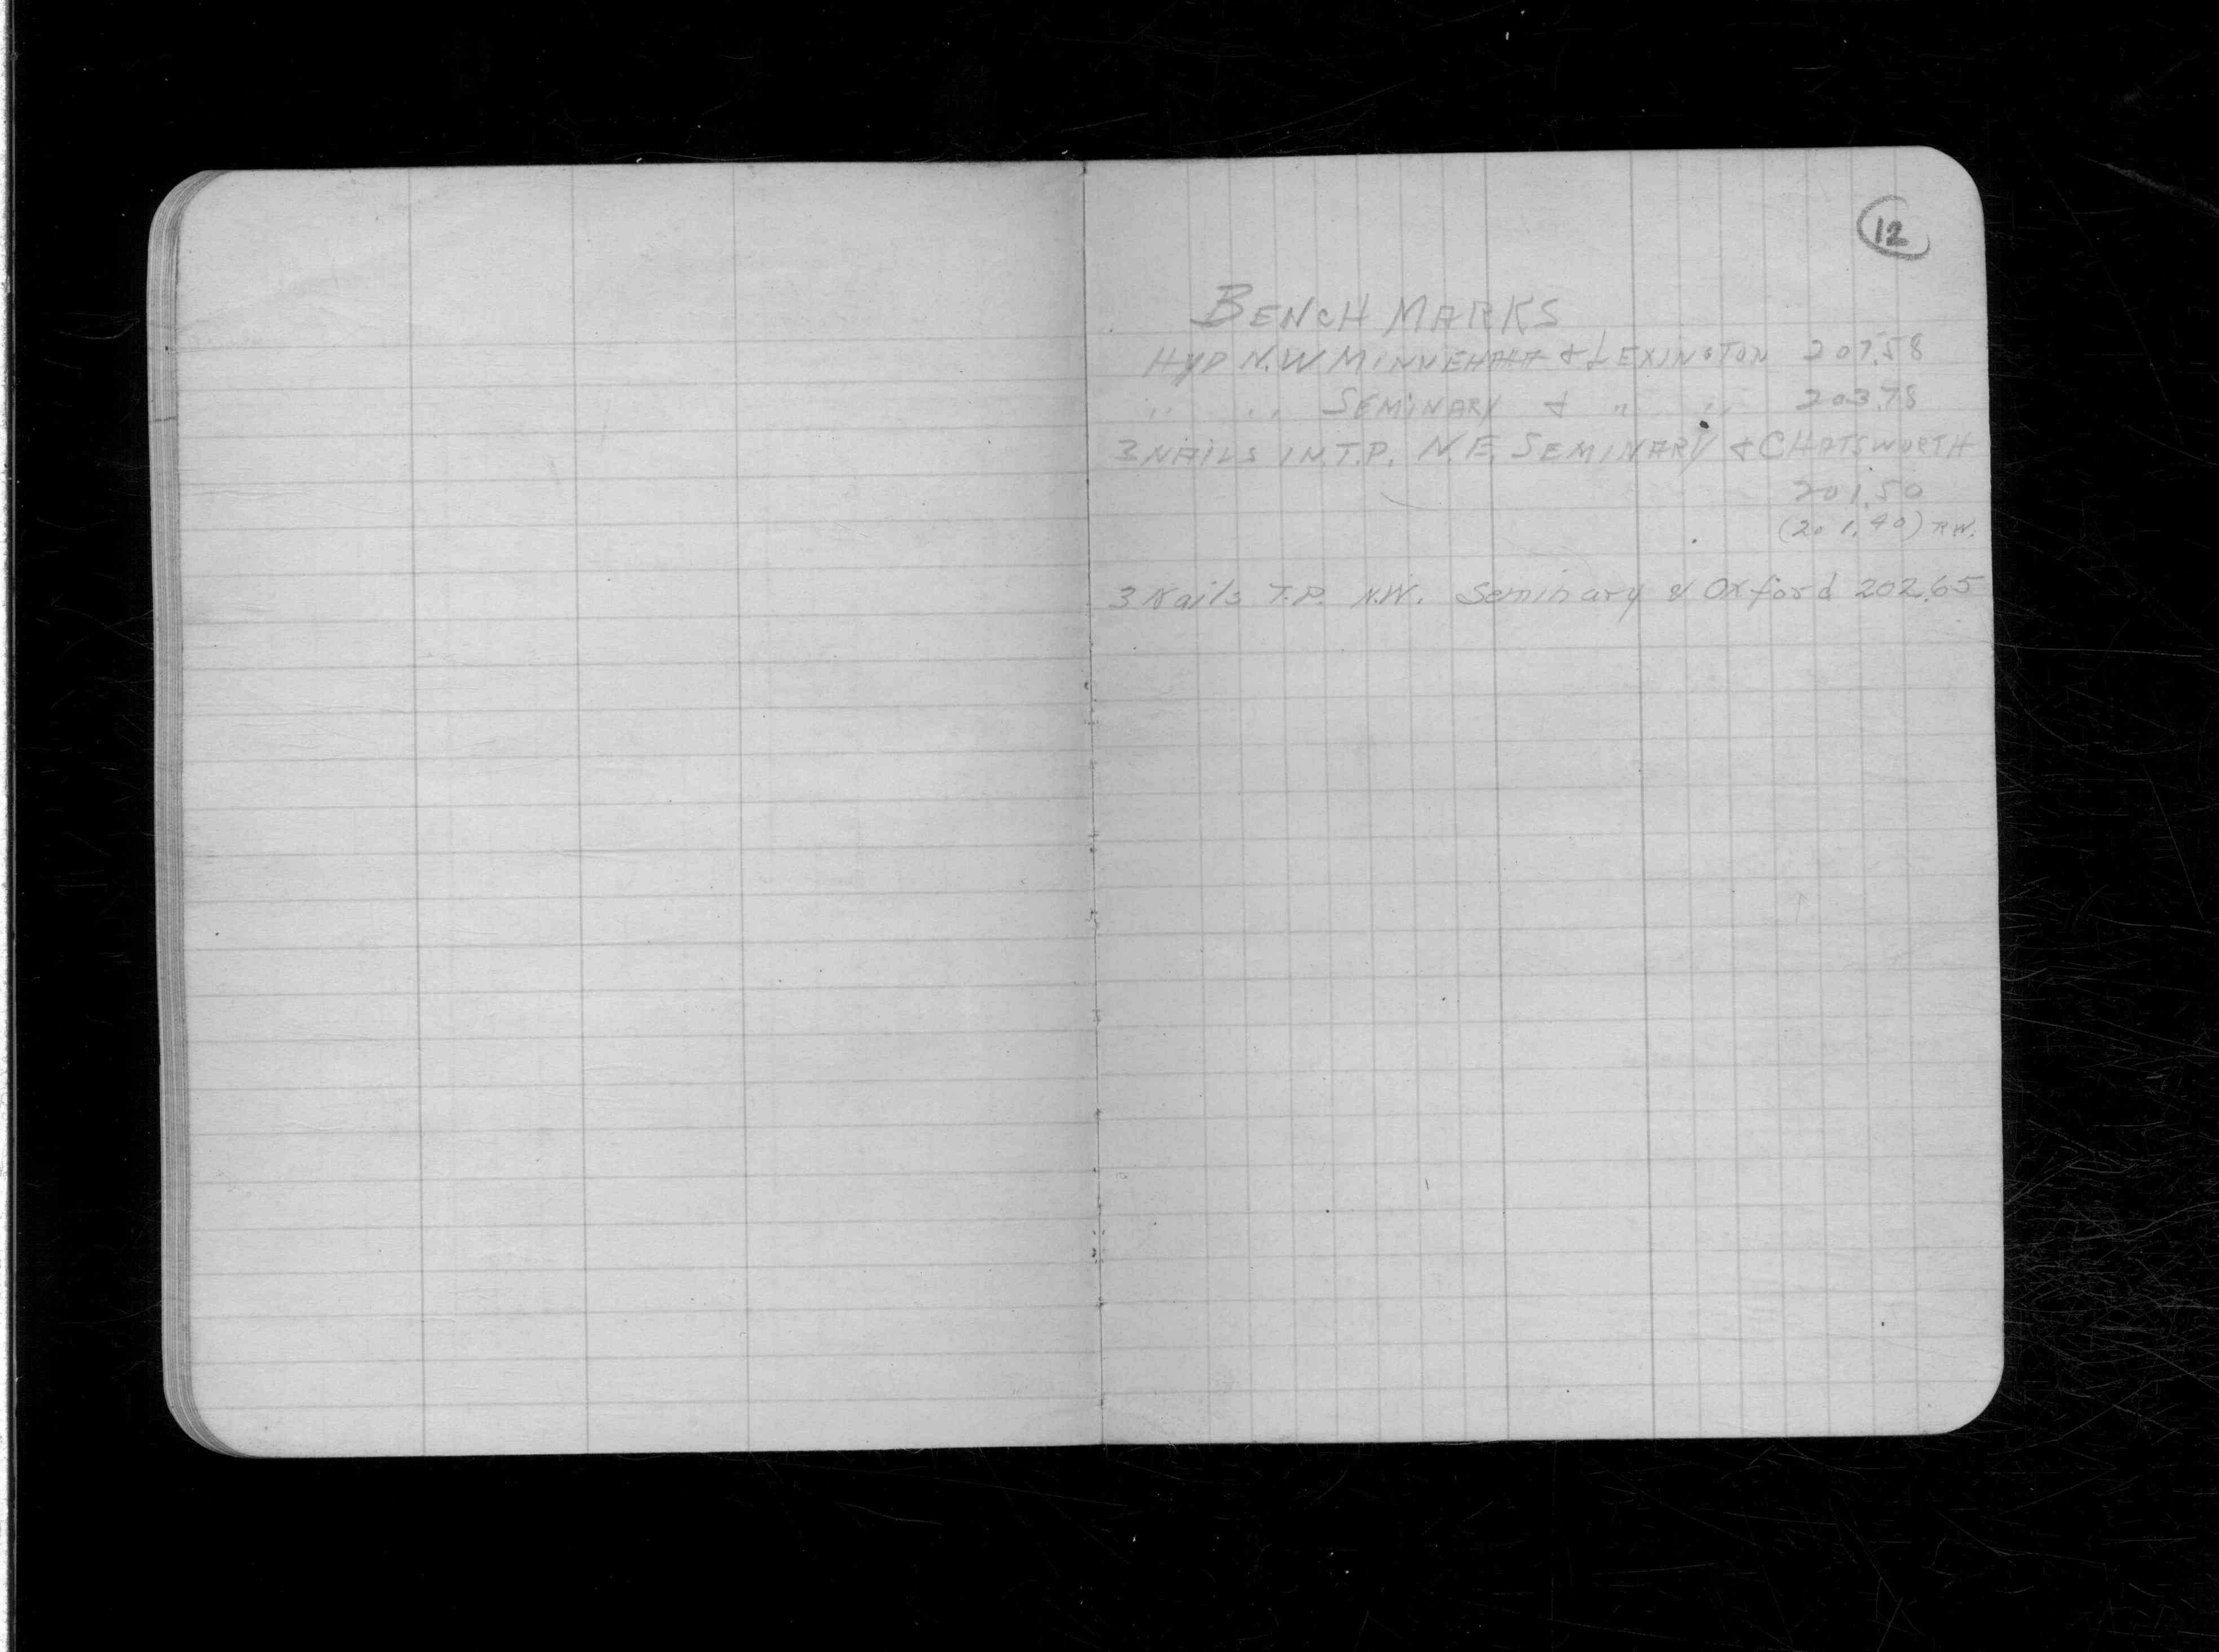 12
BENCH MARKS
HYD N.W MINNEHAHA & LEXINGTON 207.58
" " SEMINARY & " " 203.78
3 NAILS IN T.P. N.E. SEMINARY & CHATSWORTH
201.50
(201.40) R.W.
3 Nails T.P. N.W. Seminary & Oxford 202.65